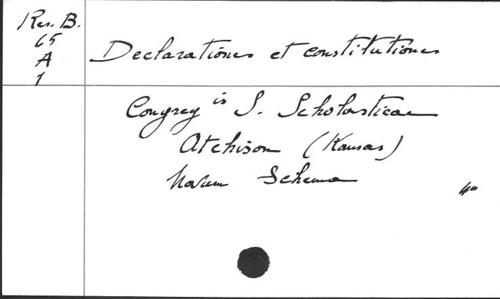 Res. B.
65
A
1
Declarationes et constitutiones
Congreg is S. Scholasticae
Atchison (Kansas)
Novum Schema
4°